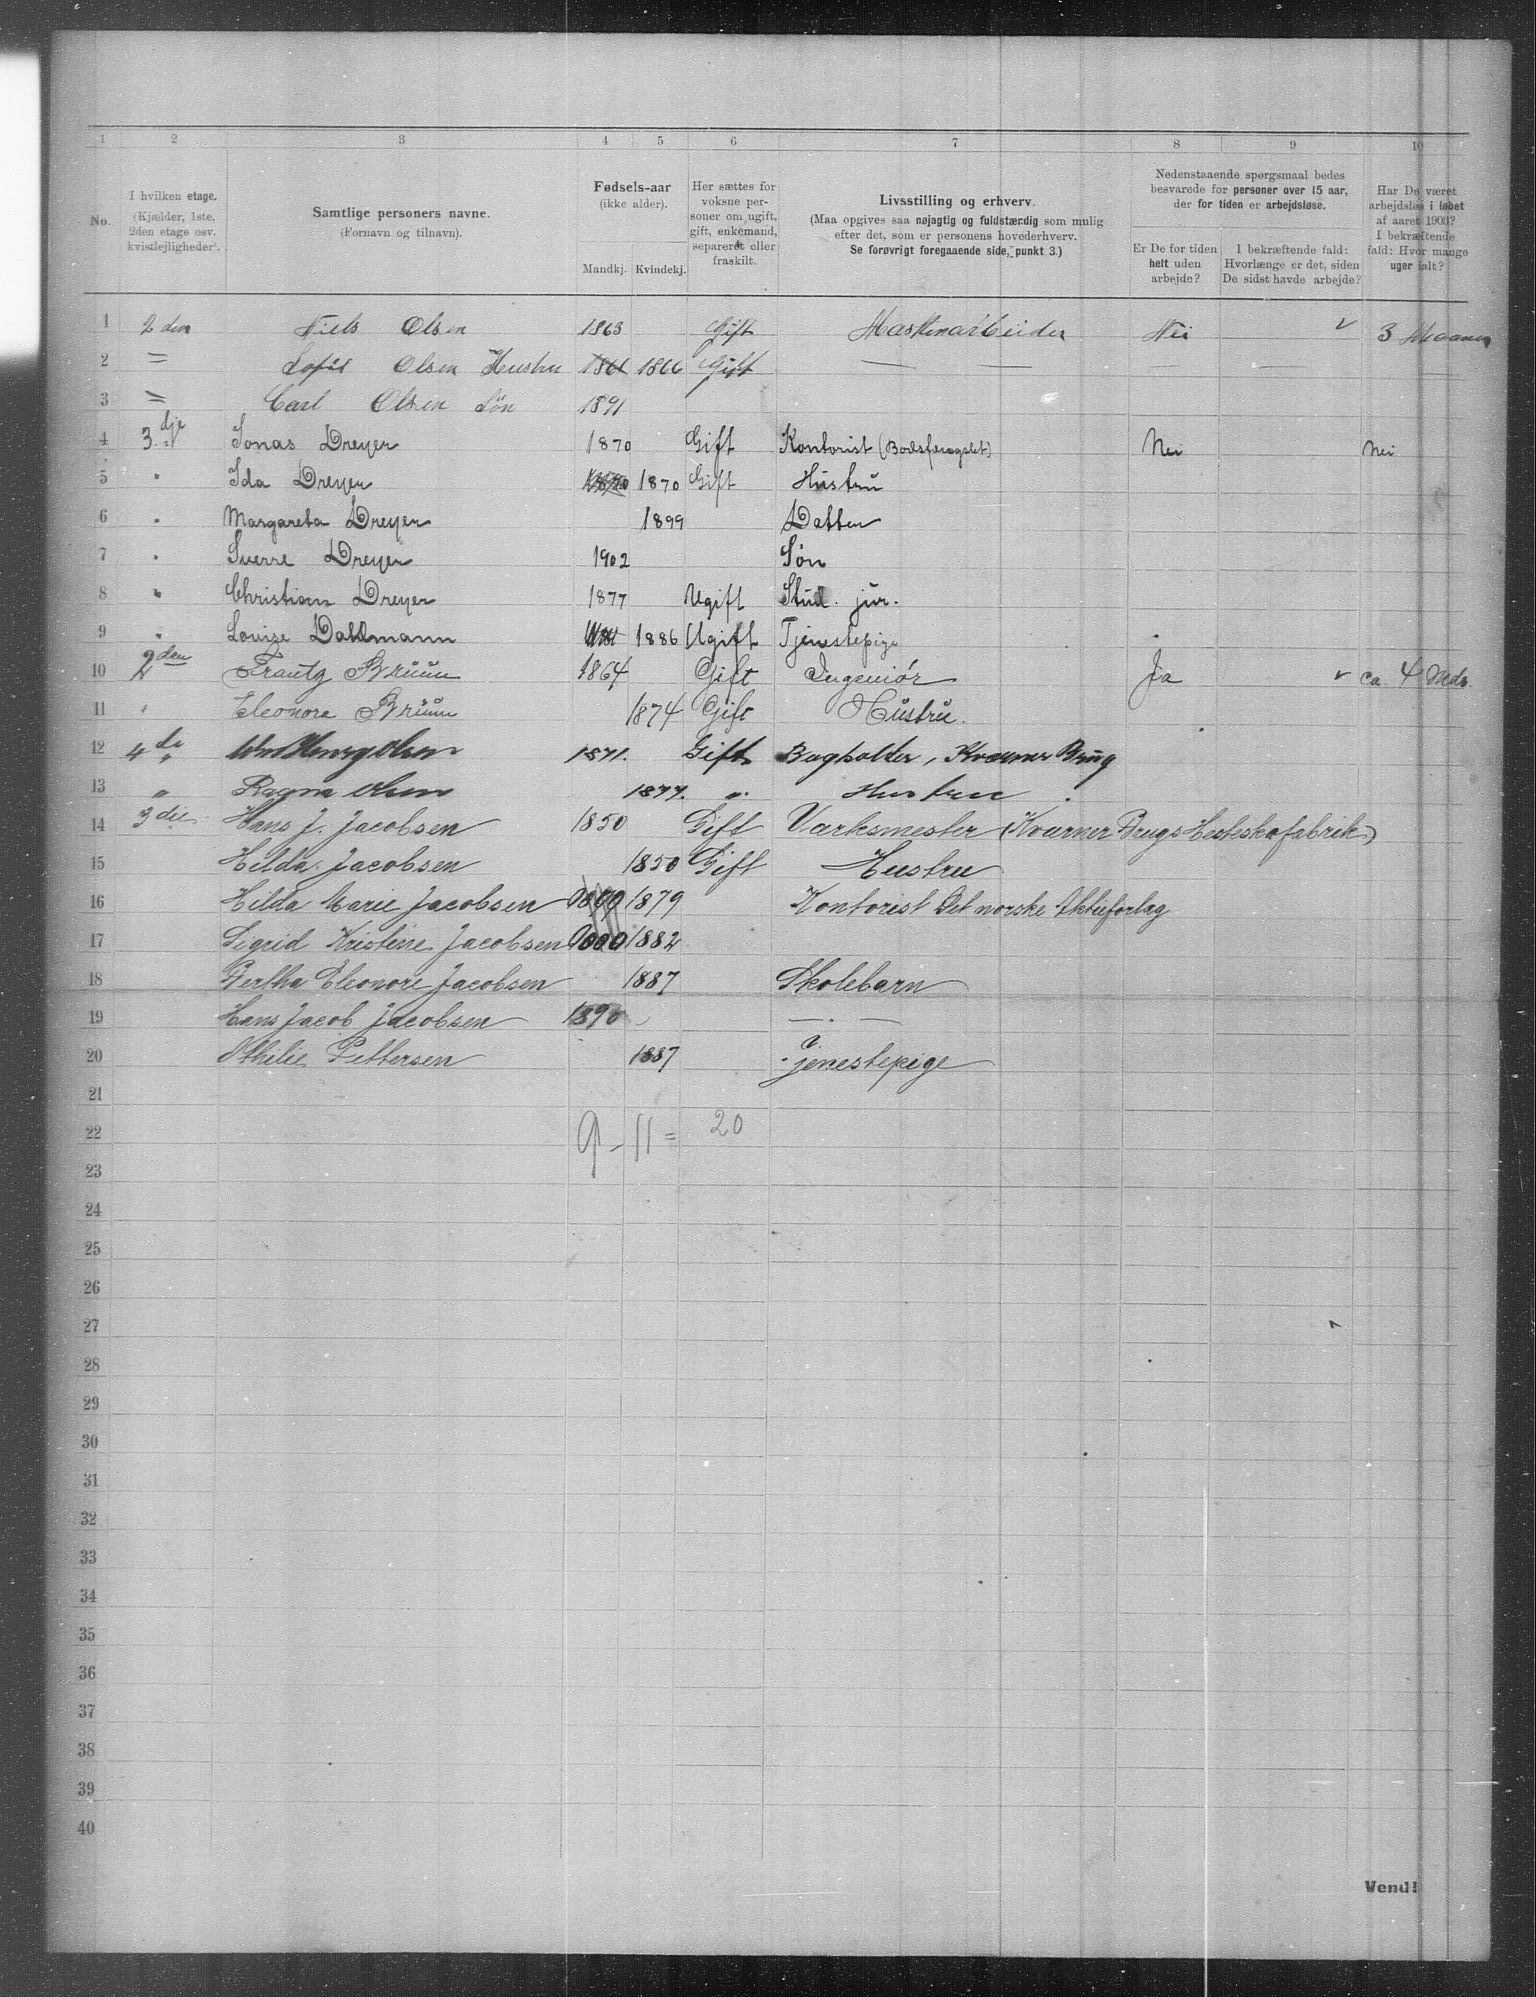 1 2 3 4 5 6 7 8 9 10
No.
I hvilken etage.
(Kjælder, 1ste, 2den etage osv. kvistlejligheder).
Samtlige personers navne.
(Fornavn og tilnavn).
Fødsels-aar
(ikke alder).
Mandkj. Kvindekj.
Her sættes for voksne personer om ugift, gift, enkemand, separeret eller fraskilt.
Livsstilling og erhverv.
(Maa opgives saa nøjagtig og fuldstærdig som mulig efter det, som er personens hovederhverv.
Se forøvrigt foregaaende side, punkt 3.)
Nedenstaaende spørgsmaal bedes besvarede for personer over 15 aar, der for tiden er arbejdsløse.
Er De for tiden helt uden arbejde?
I bekræftende fald: Hvorlænge er det, siden De sidst havde arbejde?
Har De været arbejdsløs i løbet af aaret 1903? I bekræftende fald: Hvor mange uger ialt?
1 2den Niels Olsen 1863 Gift Maskinarbeider Nei 3 Maaner
2 = Olsen Hustru 1861 1866 Gift — —
3 = Carl Olsen Søn 1891
4 3dje Jonas Dreyer 1870 Gift Kontorist (Bodsfængslet) Nei Nei
5 " Ida Dreyer 1870 1870 Gift Hüstrü
6 " Margareta Dreyer 1899 Datter
7 " Sverre Dreyer 1902 Søn
8 " Christian Dreyer 1877 Ugift Stud. jur.
9 " Louise Dahlmann 1886 Ugift Tjenestepige
10 2den Frantz Brüün 1864 Gift Ingeniör Ja ca. 4 Mdr.
11 " Eleonora Brüün 1874 Gift Hüstrü.
12 4de " Wm Henry Olsen 1871. Gift Bogholder, Kværner Brug
13 " Ragna Olsen 1877. " Hustru
14 3die Hans J. Jacobsen 1850 Gift Værksmester (Kværner Brugs Hesteskofabrik)
15 Hilda Jacobsen 1850 Gift Hustru
16 Hilda Marie Jacobsen 1879 Kontorist Det norske Aktieforlag
17 Sigrid Kristine Jacobsen 1882
18 Bertha Eleonore Jacobsen 1887 Skolebarn
19 Hans Jacob Jacobsen 1890 — " —
20 Othilie Pettersen 1887 Tjenestepige
21
22 9 - 11 = 20
23
24
25
26
27
28
29
30
31
32
33
34
35
36
37
38
39
40
Vend!